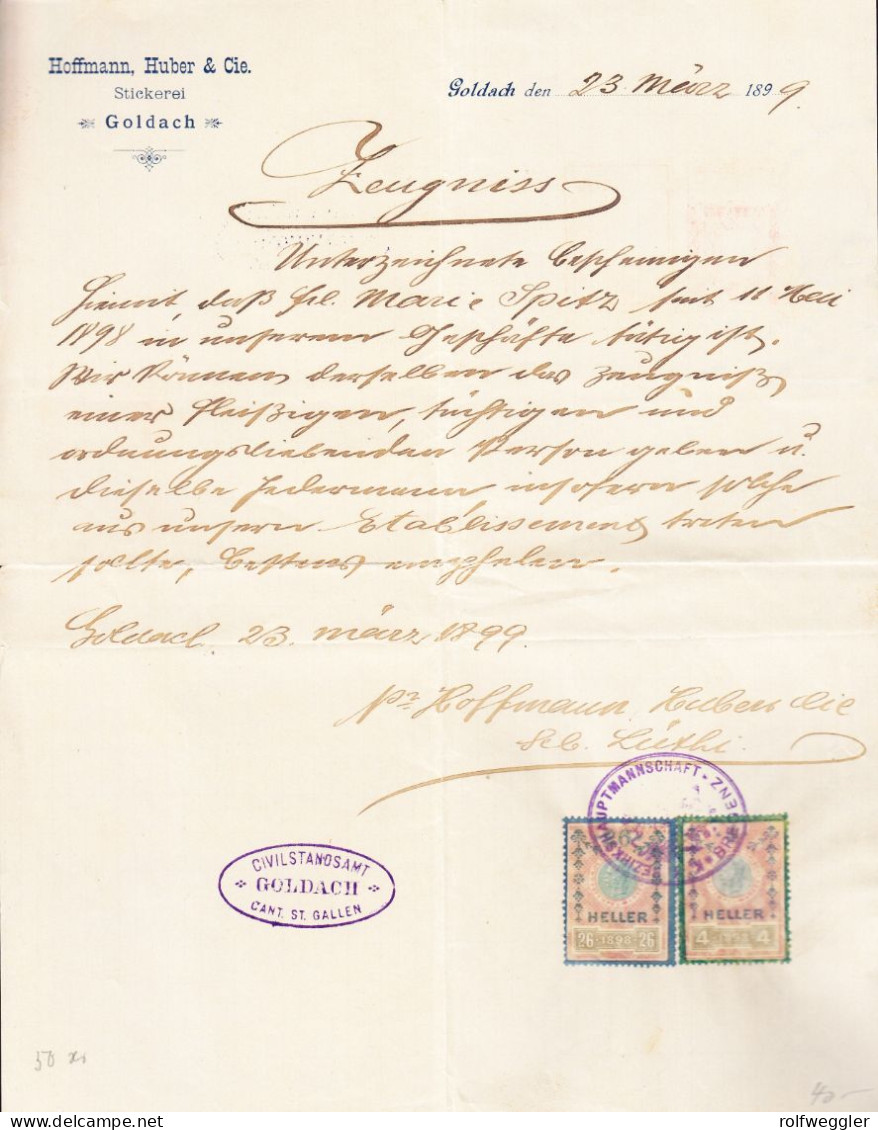 Hoffmann, Huber & Cie.
Stickerei
Goldach
Goldach den 23 März 1899.
Zeugniss
Unterzeichnete bescheinigen
hiemit, daß frl. Marie Spitz seit 11 Mai
1898 in unserem Geschäfte tätig ist.
Wir können derselben das Zeugniß
einer fleißigen, tüchtigen und
ordnungsliebenden Person geben u.
dieselbe Jedermann, insofern solche
aus unserm Etablissement treten
sollte, bestens empfehlen.
Goldach, 23. März 1899.
pr Hoffmann Huber & Cie
Lüthi.
BEZIRKSHAUPTMANNSCHAFT
BREGENZ
CIVILSTANDSAMT
GOLDACH
CANT. ST. GALLEN
HELLER HELLER
26 1898 26 4 1898 4
50
40-
rolfweggler